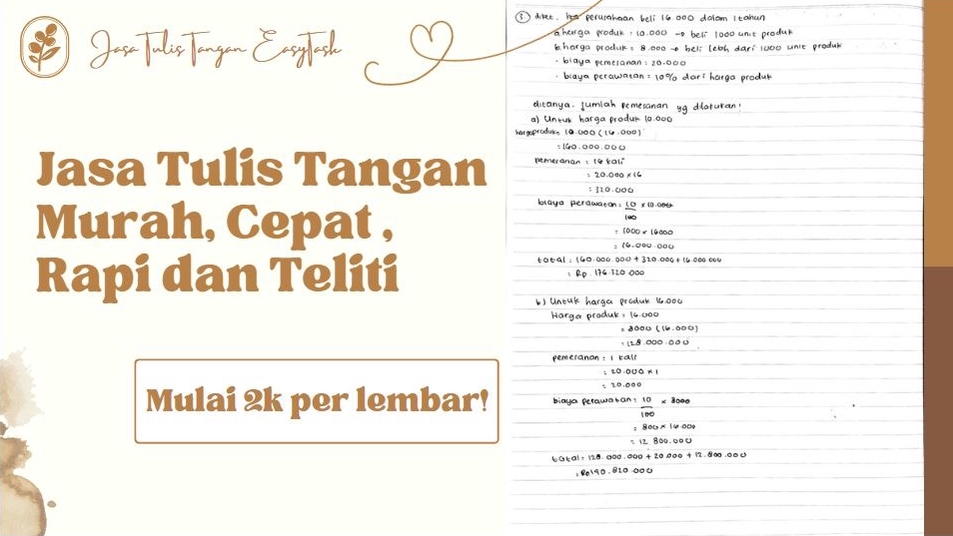 Jasa Tulis Tangan EasyTask
Jasa Tulis Tangan
Murah, Cepat ,
Rapi dan Teliti
Mulai 2k per lembar!
3. diket. perusahaan beli 16.000 dalam 1 tahun
a. harga produk = 10.000 → beli 1000 unit produk
b. harga produk = 8.000 → beli lebih dari 1000 unit produk
- biaya pemesanan = 20.000
- biaya perawatan = 10% dari harga produk
ditanya. Jumlah pemesanan yg dilakukan!
a) Untuk harga produk 10.000
harga produk = 10.000 (16.000)
= 160.000.000
pemesanan = 16 kali
= 20.000 x 16
= 320.000
biaya perawatan = 10/100 x 10.000
= 1000 x 16000
= 16.000.000
total = 160.000.000 + 320.000 + 16.000.000
= Rp. 176.320.000
b) Untuk harga produk 16.000
Harga produk = 16.000
= 8000 (16.000)
= 128.000.000
pemesanan = 1 kali
= 20.000 x 1
= 20.000
biaya perawatan = 10/100 x 8000
= 800 x 16.000
= 12.800.000
total = 128.000.000 + 20.000 + 12.800.000
= Rp 140.820.000